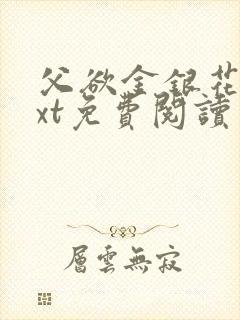 父欲金銀花
xt免費閱讀
層雲無寂